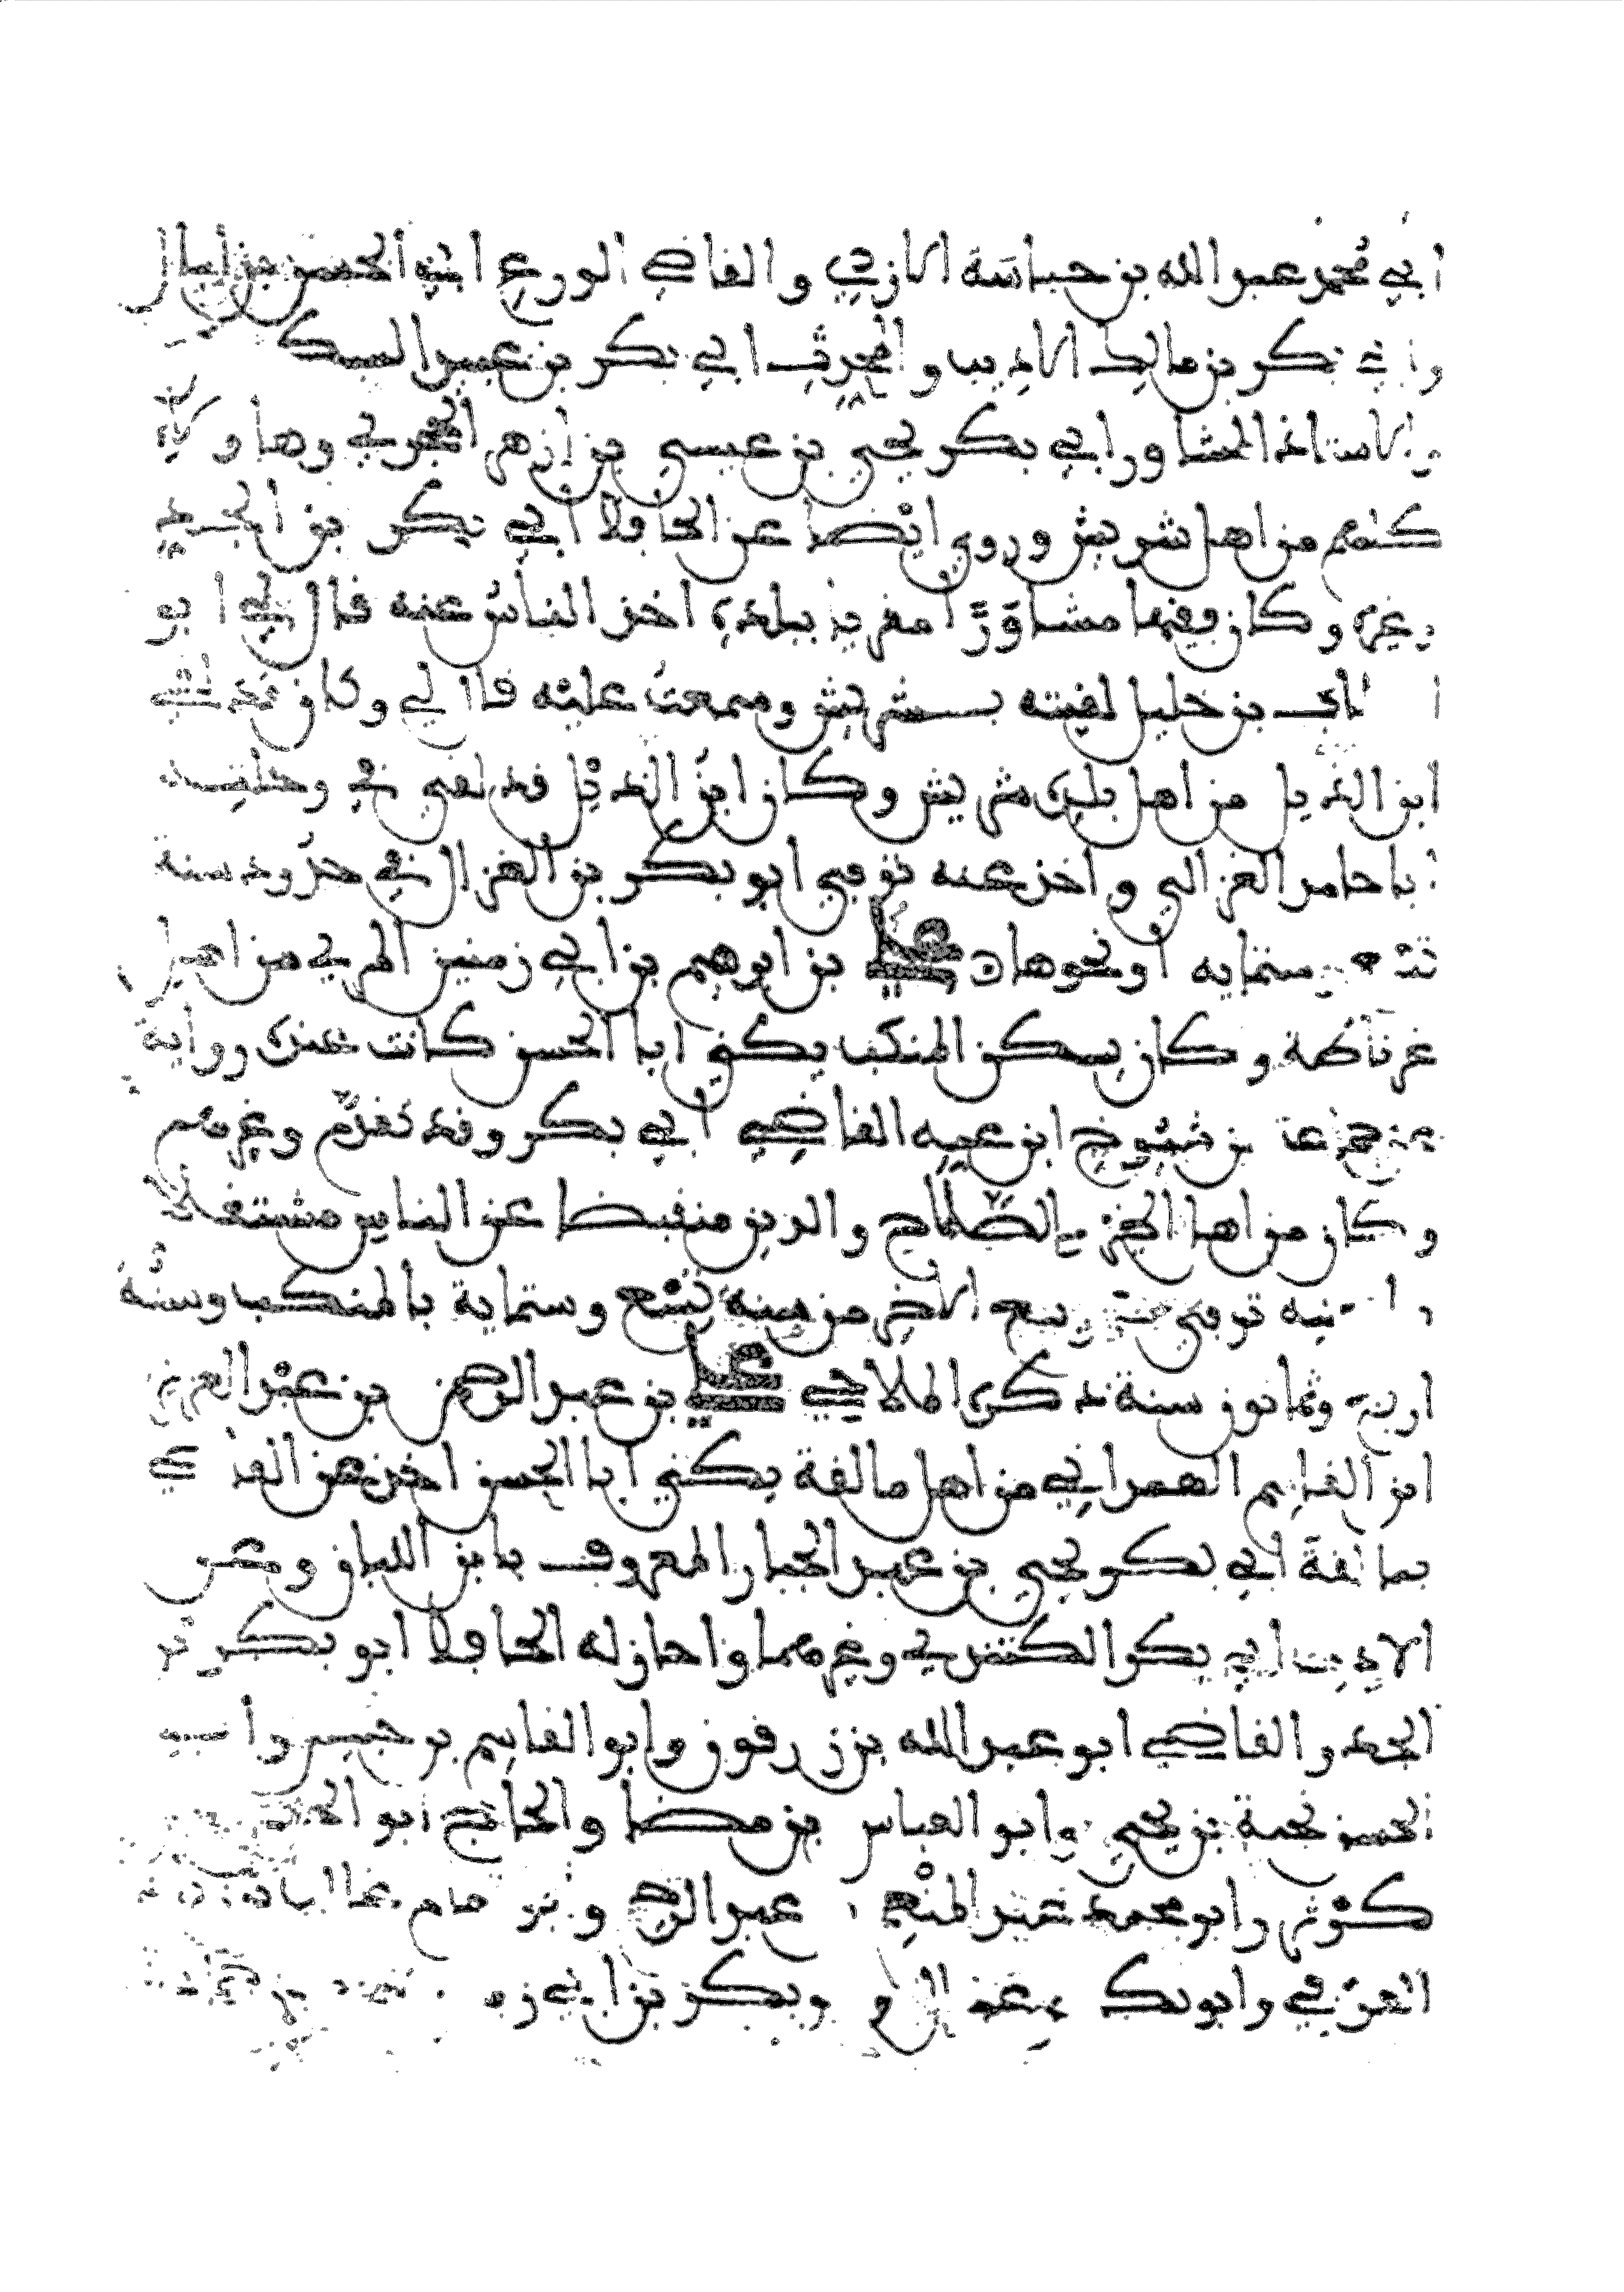 ابي محمد عبد الله بن حباسة الازدي والقاضي الورع ابي الحسن بن
بكر بن مالك الاديب والمحدث ابي بكر بن عبيد السكـ
والاستاذ المشاور ابي بكر يحيى بن عيسى بن ازهر الحجري وهاولاء
كلهم من اهل شريش وروى ايضا عن الحافظ ابي بكر بن الجد
وغيره وكان فقيها مشاورا مقريا ببلده اخذ الناس عنه قال لي ابو
بن خليل لقيته بشريش وسمعت عليه قال لي وكان
ابن الغزال من اهل بلده شريش وكان ابن الغزال قد لقي في
ابا حامد الغزالي واخذ عنه توفي ابو بكر بن الغزال في حدود سنة
ستماية او نحوها علي بن ابرهيم بن ابي زمنين المري من اهل
غرناطة وكان يسكن المنكب يكنى ابا الحسن كانت عنده رواية
عن من شيوخ ابن عمه القاضي ابي بكر وقد تقدم وغيرهم
وكان من اهل الخير والصلاح والدين منقبضا عن الناس مشتغلا
توفي ربيع الاخر من سنة تسع وستماية بالمنكب وسنه
اربع وثمانون سنة ذكره الملاحي علي بن عبد الرحمن بن عبد العزيز
ابن القاسم الهمداني من اهل مالقة يكنى ابا الحسن اخذ عن
بمالقة ابي بكر يحيى بن عبد الجبار المعروف بابن اللبان وعن
الاديب ابي بكر الكتندي وغيرهما واجاز له الحافظ ابو بكر بن
الجد والقاضي ابو عبد الله بن زرقون وابو القاسم بن حبيش وابو
الحسن نجبة بن يحيى وابو العباس بن مضا والحاج ابو الحسن
كوثر وابو محمد عبد المنعم عبد الرحيم
العزفي وابو بكر وبكر بن ابي